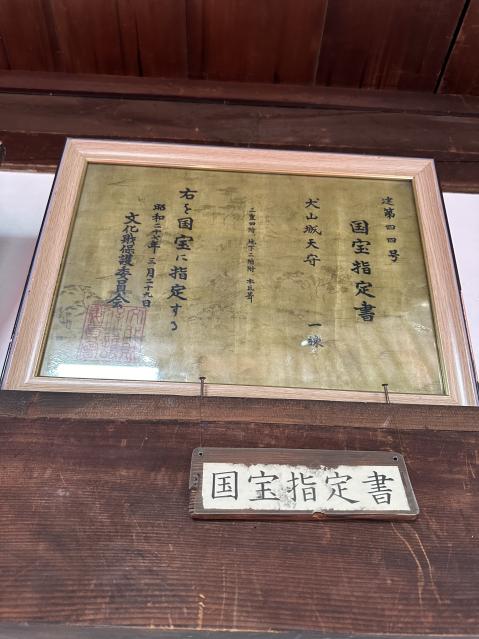 建第四四号
国宝指定書
犬山城天守 一棟
三重四階、地下二階附、本瓦葺
右を国宝に指定する
昭和二十七年三月二十九日
文化財保護委員会
国宝指定書